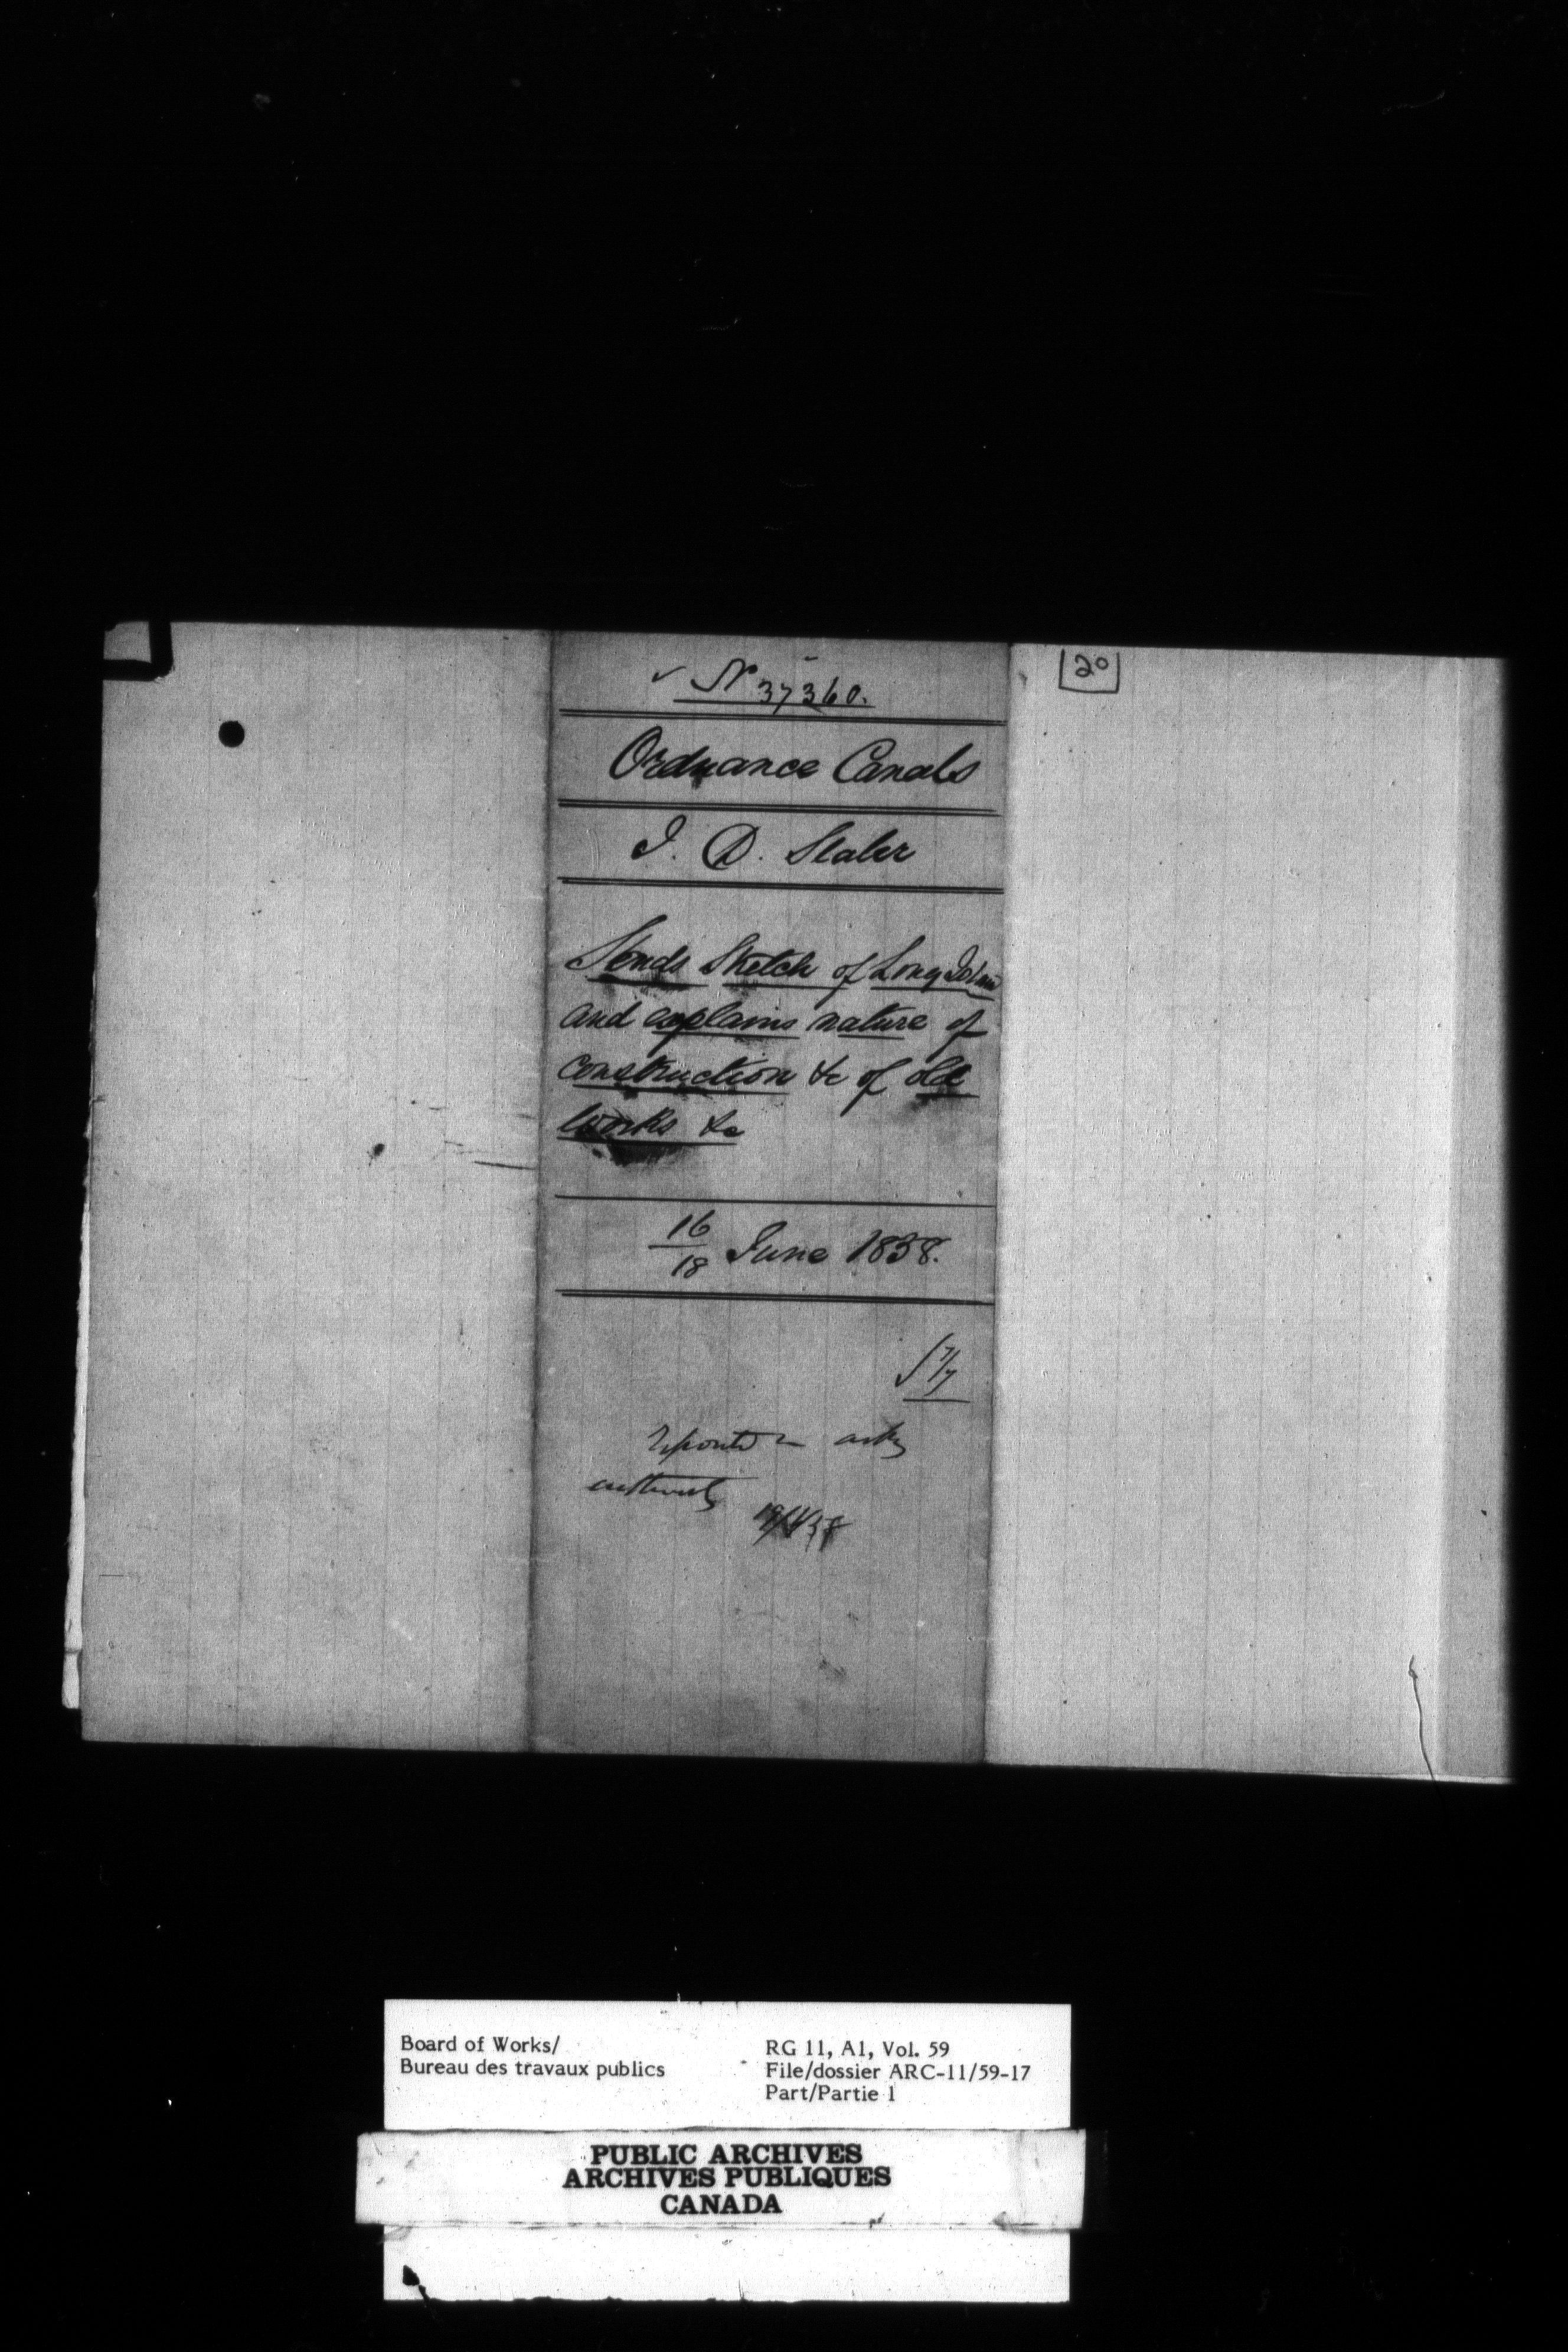 20
✓ No 37360.
Ordnance Canals
J. D. Slater
Sends Sketch of Long Island
and explains nature of
construction &c of old
works &c
16/18 June 1858.
7/7
Board of Works/
Bureau des travaux publics
RG 11, A1, Vol. 59
File/dossier ARC-11/59-17
Part/Partie 1
PUBLIC ARCHIVES
ARCHIVES PUBLIQUES
CANADA